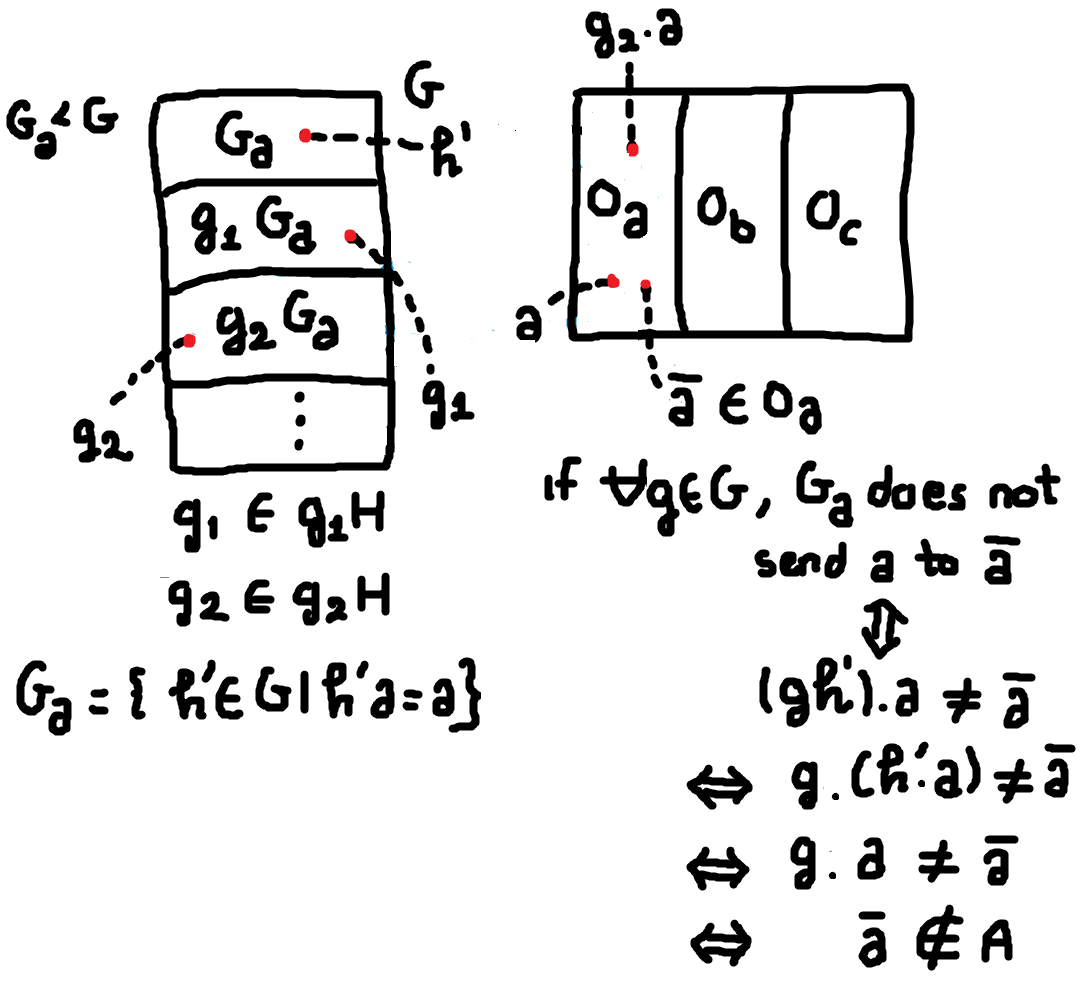 G_a < G
G
G_a
h'
g_1 G_a
g_2 G_a
g_2
g_1
⋮
g_1 ∈ g_1H
g_2 ∈ g_2H
G_a = { h' ∈ G | h'a = a }
g_2 . a
O_a
O_b
O_c
a
a̅ ∈ O_a
if ∀g∈G, G_a does not
send a to a̅
⇕
(gh').a ≠ a̅
⟺ g.(h'.a) ≠ a̅
⟺ g. a ≠ a̅
⟺ a̅ ∉ A